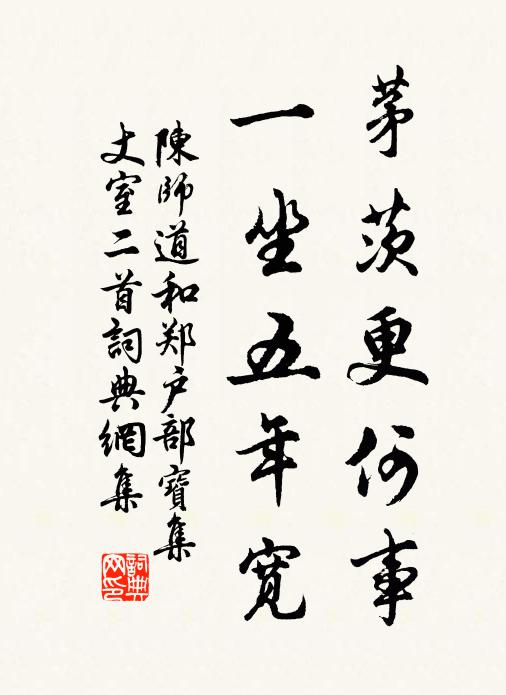 茅茨更何事
一坐五年寬
陳師道和郑户部寶集
丈室二首詞典網集
詞典网印